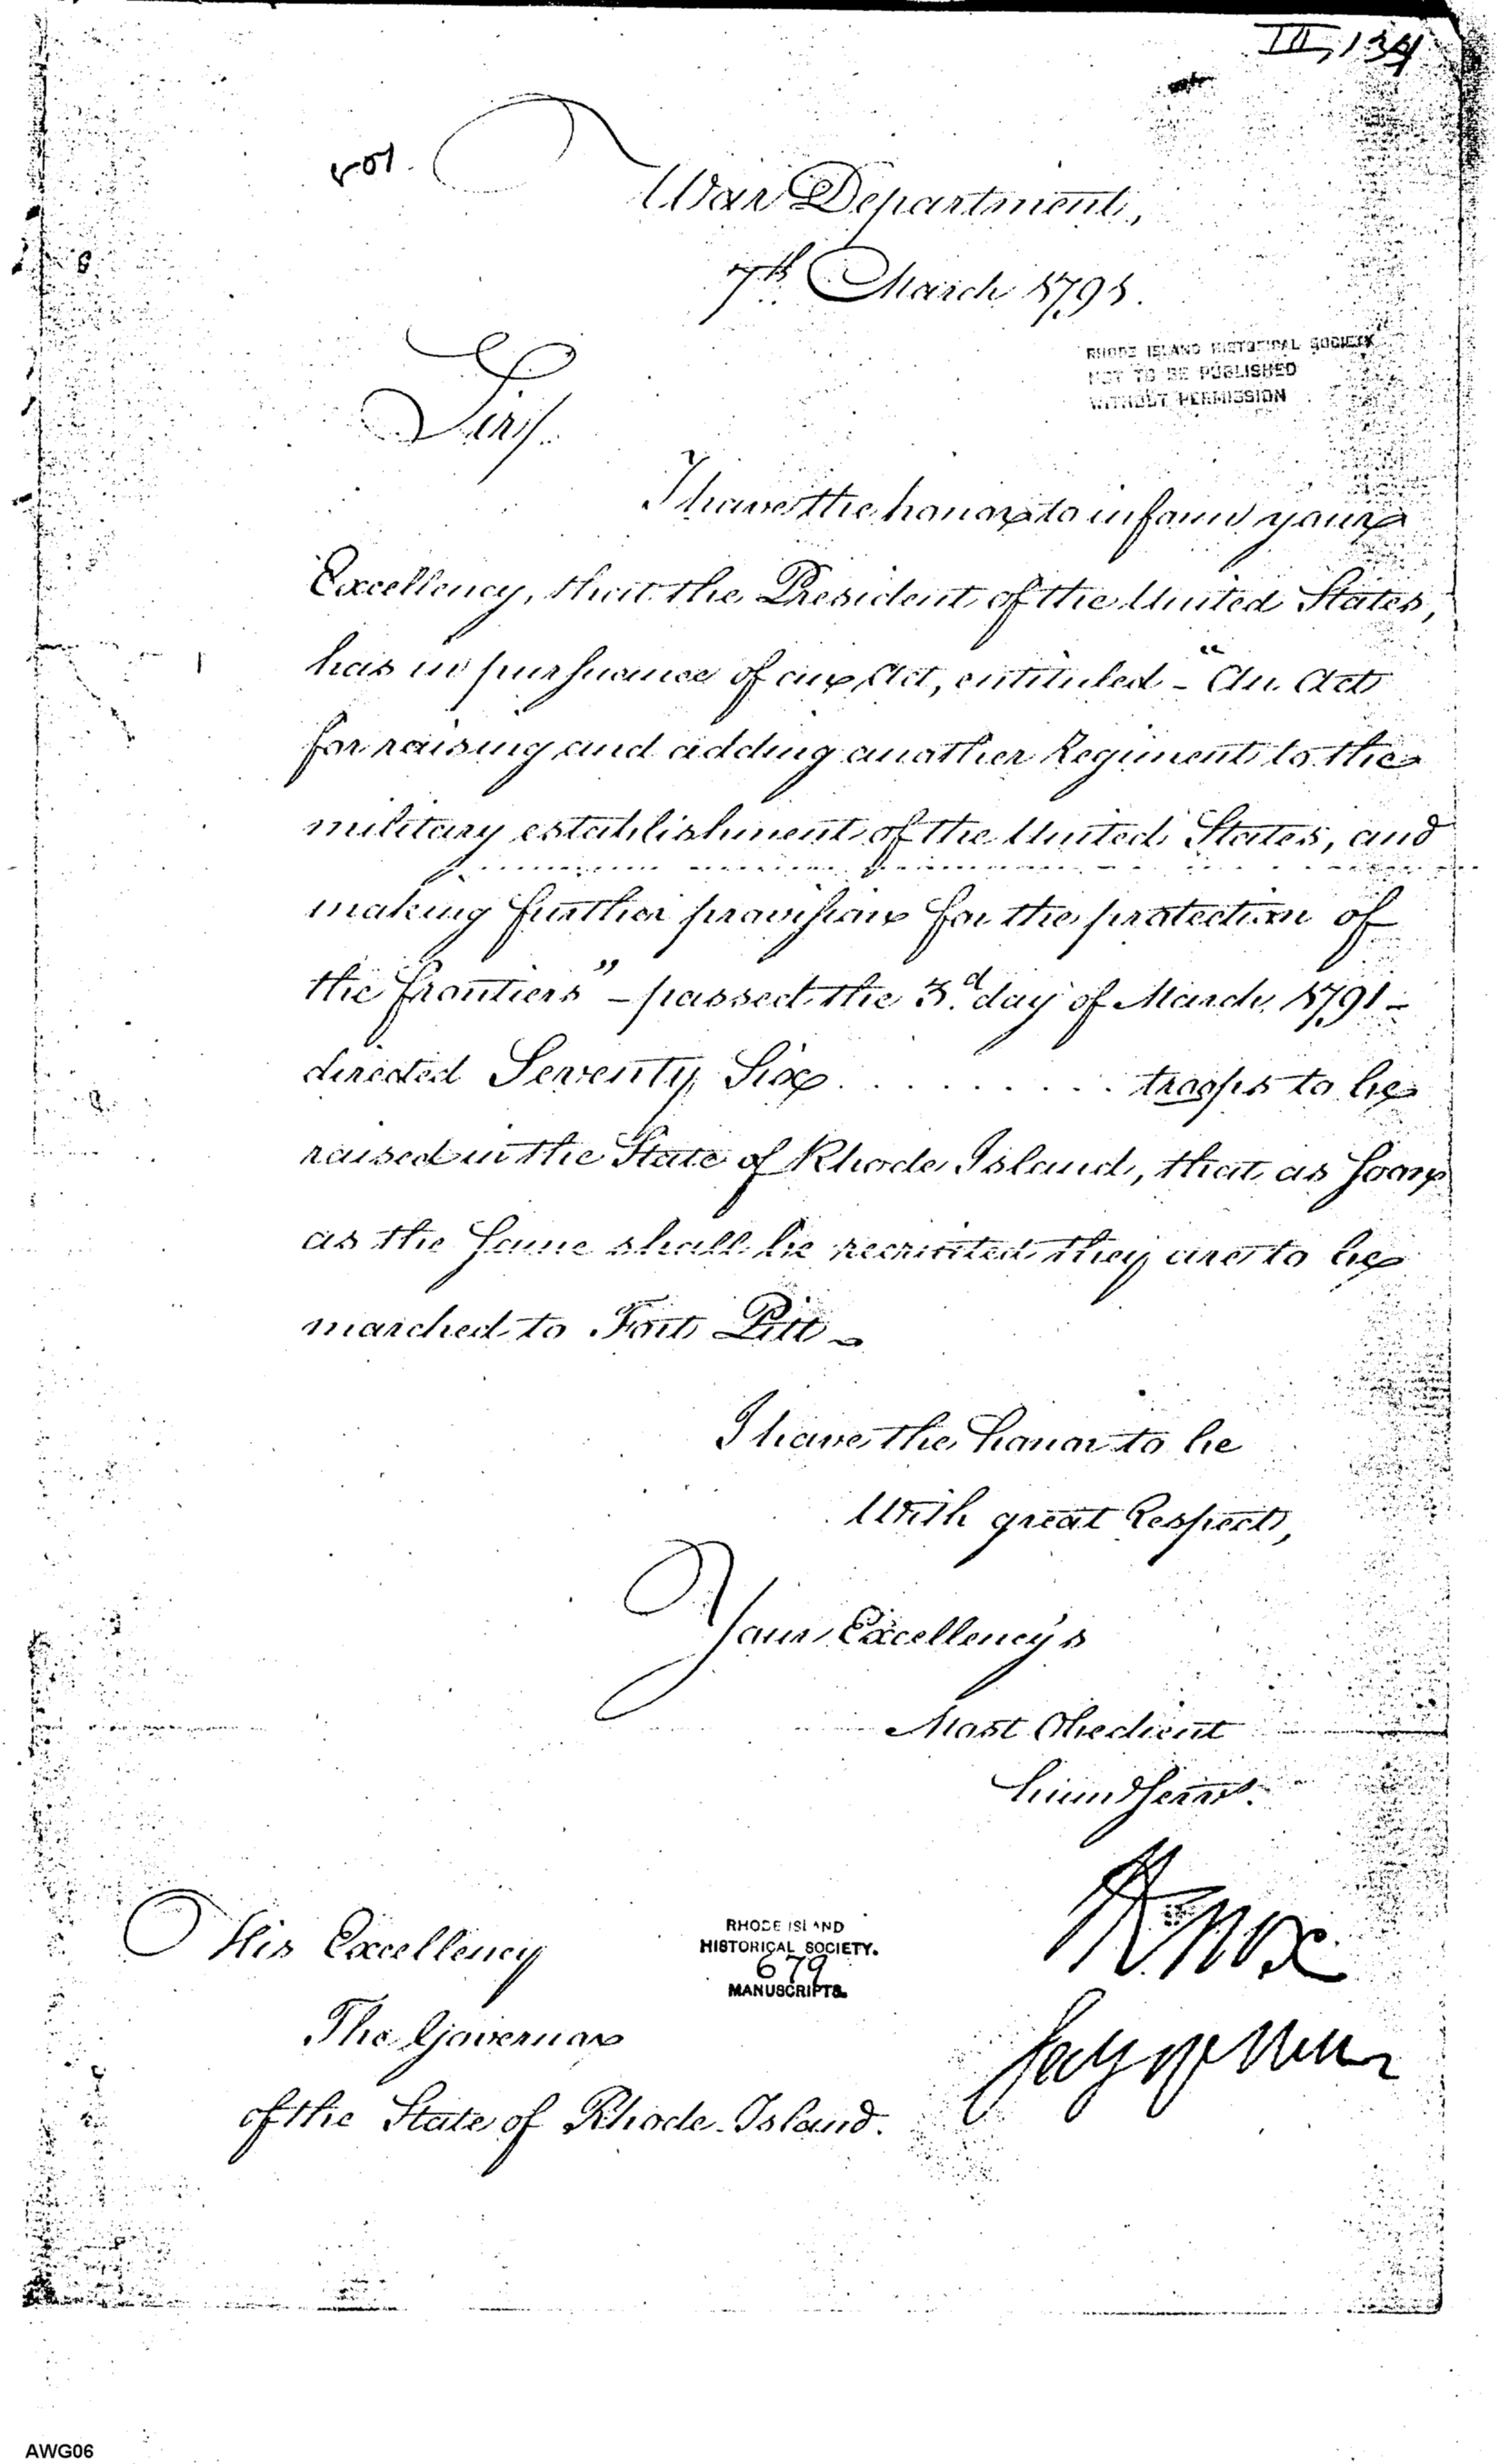 III, 134
War Department,
7th March 1791.
RHODE ISLAND HISTORICAL SOCIETY
NOT TO BE PUBLISHED
WITHOUT PERMISSION
Sir,
I have the honor to inform your
Excellency, that the President of the United States,
has in pursuance of an Act, entituled - "An Act
for raising and adding another Regiment to the
military establishment of the United States, and
making further provision for the protection of
the frontiers" - passed the 3.d day of March 1791 -
directed Seventy Six . . . . . . . . . . troops to be
raised in the State of Rhode Island, that as soon
as the same shall be recruited they are to be
marched to Fort Pitt -
I have the honor to be
With great Respect,
Your Excellency's
Most Obedient
hum Servt.
HKnox
Secy of War
His Excellency
The Governor
of the State of Rhode-Island.
RHODE ISLAND
HISTORICAL SOCIETY.
679
MANUSCRIPTS.
AWG06